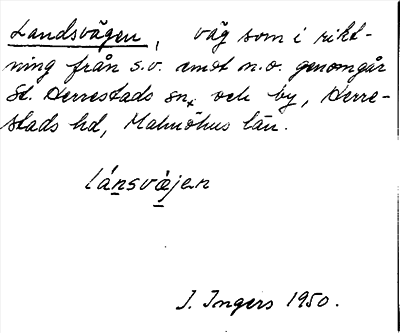 Landsvägen, väg som i rikt-
ning från s.v. emot n.o. genomgår
St. Herrestads sn, och by, Herre-
stads hd, Malmöhus län.
lánsvæjen
I. Ingers 1950.